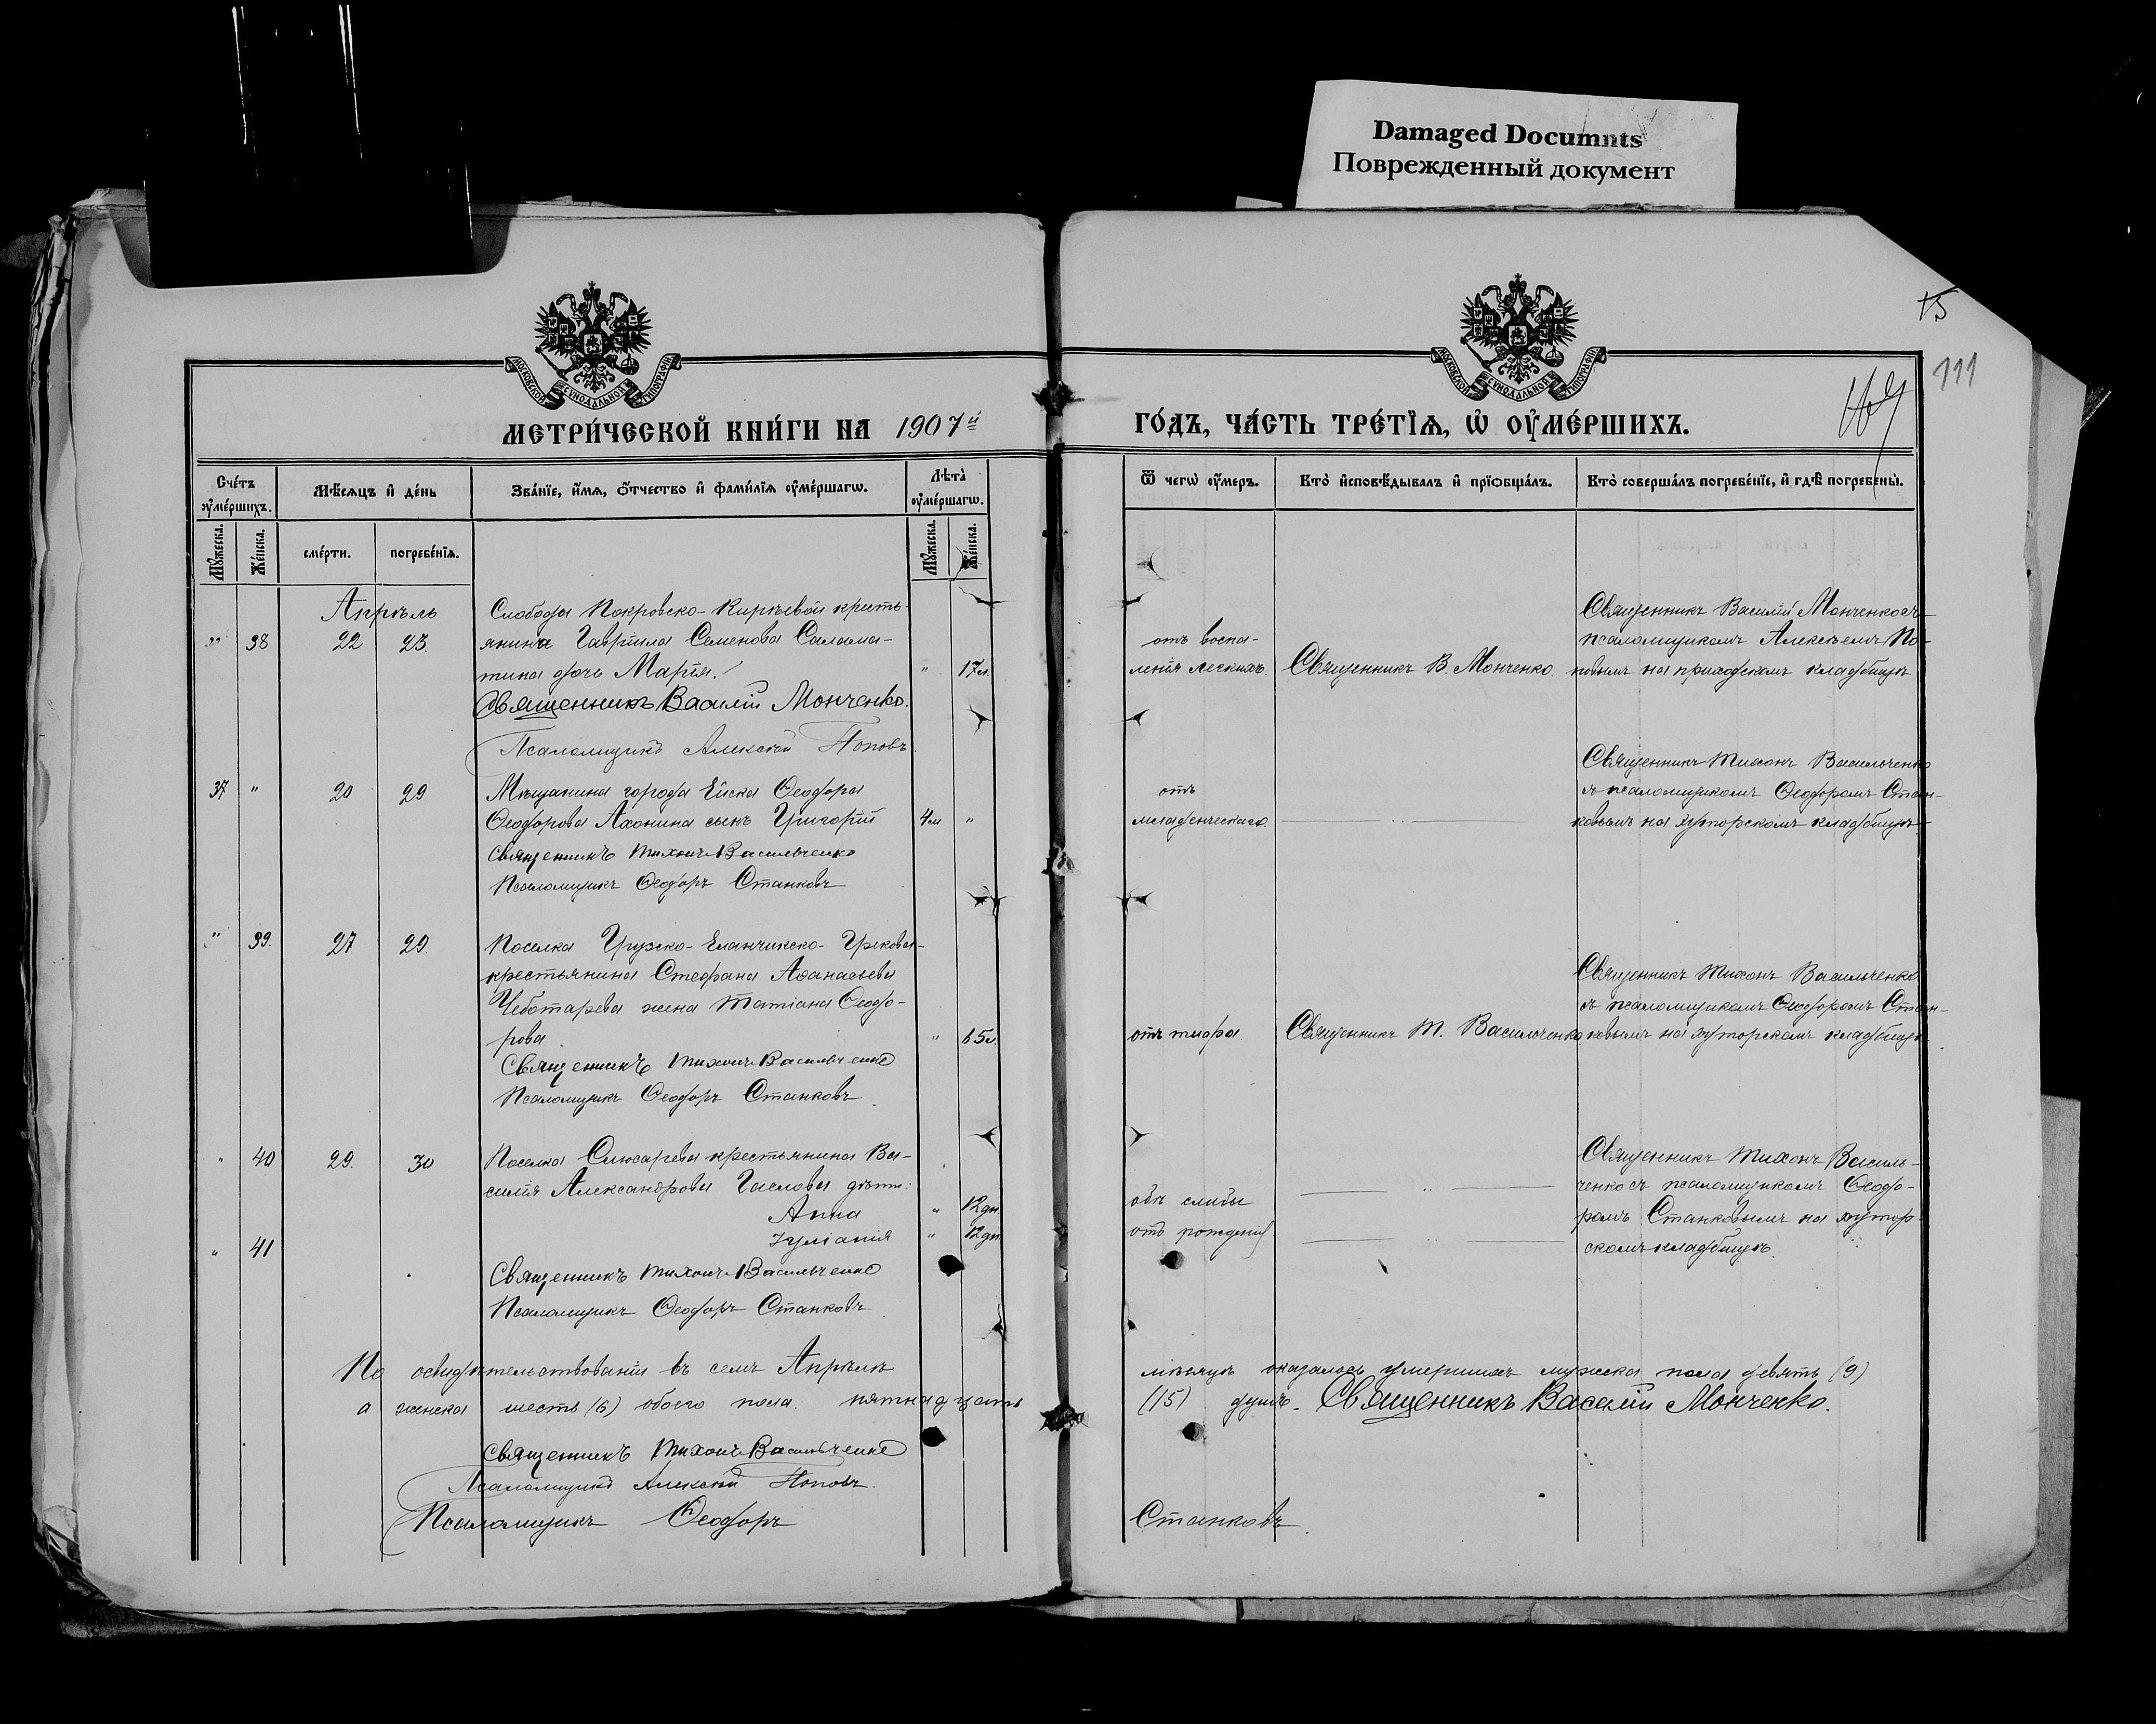 Damaged Documnts
Поврежденный документ
15
111
МОСКОВСКОЙ СѴНОДАЛЬНОЙ ТИПОГРАФІИ
МОСКОВСКОЙ СѴНОДАЛЬНОЙ ТИПОГРАФІИ
МЕТРИ́ЧЕСКОЙ КНИ́ГИ НА 1907й
ГО́ДЪ, ЧА́СТЬ ТРЕ́ТІѦ, Ѡ ОУ҆МЕ́РШИХЪ.
Сче́тъ оу҆ме́ршихъ.
Мѣ́сѧцъ и҆ де́нь
Зва́нїе, и҆́мѧ, ѻ҆́тчество и҆ фами́лїѧ оу҆ме́ршагѡ.
Лѣ́та оу҆ме́ршагѡ.
Ѿ чегѡ̀ оу҆́меръ.
Кто̀ и҆сповѣ́дывалъ и҆ прїѡбща́лъ.
Кто̀ соверша́лъ погребе́нїе, и҆ гдѣ̀ погребены̀.
Мꙋ́жеска.
Же́нска.
сме́рти.
погребе́нїѧ.
Мꙋ́жеска.
Же́нска.
Апрѣль
Слободы Покровско-Киреевой кресть-
" 38 22 23. янина Гавріила Семенова Салама-
тина дочь Марія. " 17л.
Священникъ Василій Монченко.
Псаломщикъ Алексѣй Поповъ.
отъ воспа-
ленія легкихъ.
Священникъ В. Монченко.
Священникъ Василій Монченко съ
псаломщикомъ Алексѣемъ По-
повымъ на приходскомъ кладбищѣ
37 " 20 29 Мѣщанина города Ейска Ѳеодора
Ѳеодорова Ахонина сынъ Григорій 4м "
Священникъ Тихонъ Васильченко
Псаломщикъ Ѳеодоръ Станковъ
отъ
младенческаго.
Священникъ Тихонъ Васильченко
съ псаломщикомъ Ѳеодоромъ Стан-
ковымъ на хуторскомъ кладбищѣ
" 39. 27 29. Поселка Грузско-Еланчикско-Грекова-
крестьянина Стефана Аѳанасьева
Чеботарева жена Татіана Ѳеодо-
рова. " 65л.
Священникъ Тихонъ Васильченко
Псаломщикъ Ѳеодоръ Станковъ.
отъ тифа.
Священникъ Т. Васильченко
Священникъ Тихонъ Васильченко
съ псаломщикомъ Ѳеодоромъ Стан-
ковымъ на хуторскомъ кладбищѣ.
" 40 29. 30 Поселка Слюсарева крестьянина Ва-
силія Александрова Гаслова дѣти:
Анна " 12дн.
" 41 Іуліанія " 12дн.
Священникъ Тихонъ Васильченко
Псаломщикъ Ѳеодоръ Станковъ.
обѣ слабы
отъ рожденія
Священникъ Тихонъ Василь-
ченко съ псаломщикомъ Ѳеодо-
ромъ Станковымъ на хутор-
скомъ кладбищѣ.
По освидѣтельствованіи въ семъ Апрѣлѣ мѣсяцѣ оказалось умершихъ мужска пола девять (9)
а женска шесть (6) обоего пола пятнадцать (15) душъ. Священникъ Василій Монченко.
Священникъ Тихонъ Васильченко
Псаломщикъ Алексѣй Поповъ.
Псаломщикъ Ѳеодоръ Станковъ.